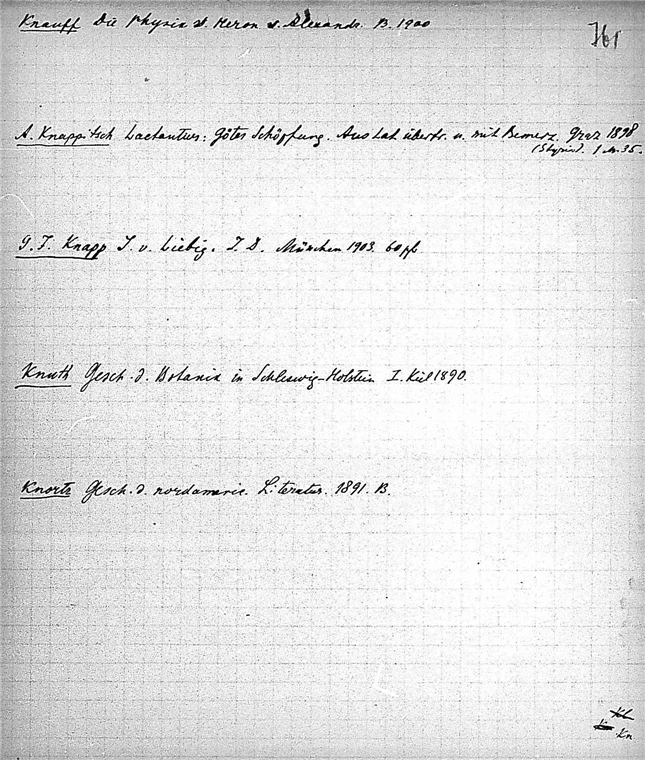 Knauff Die Physik d. Heron v. Alexandr. B. 1900
A. Knappitsch Lactantius: Gottes Schöpfung. Aus Lat. übertr. u. mit Bemerk. Graz 1898
(Styria). 1 M. 35.
G. F. Knapp J. v. Liebig. München 1903. 60 pf.
Knuth Gesch. d. Botanik in Schleswig-Holstein I. Kiel 1890.
Knortz Gesch. d. nordamerik. Literatur. 1891. B.
Kn